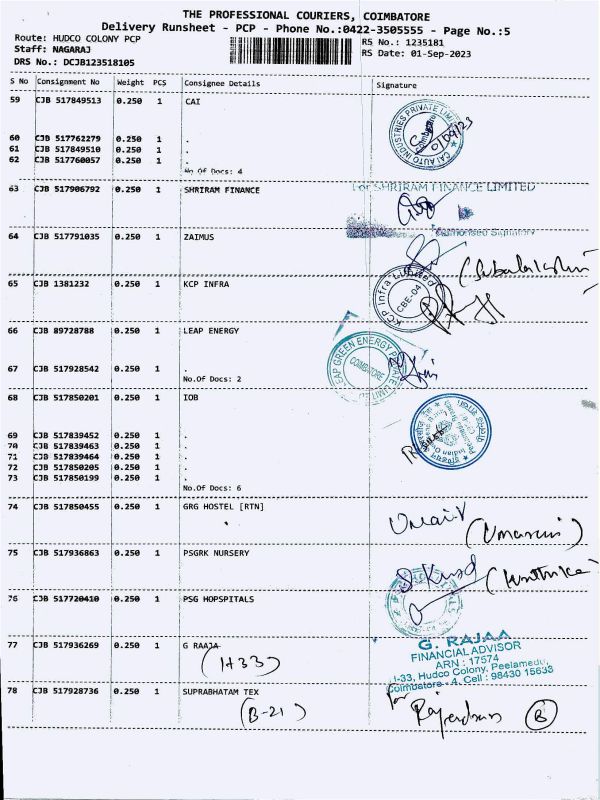 THE PROFESSIONAL COURIERS, COIMBATORE
Delivery Runsheet - PCP - Phone No.:0422-3505555 - Page No.:5
Route: HUDCO COLONY PCP RS No.: 1235181
Staff: NAGARAJ RS Date: 01-Sep-2023
DRS No.: DCJB123518105
S No Consignment No Weight PCS Consignee Details Signature
59 CJB 517849513 0.250 1 CAI
CAI AUTO INDUSTRIES PRIVATE LIMITED
Coimbatore
60 CJB 517762279 0.250 1 .
61 CJB 517849510 0.250 1 .
62 CJB 517760057 0.250 1 .
No.Of Docs: 4
63 CJB 517906792 0.250 1 SHRIRAM FINANCE
For SHRIRAM FINANCE LIMITED
Authorised Signatory
64 CJB 517791035 0.250 1 ZAIMUS
65 CJB 1381232 0.250 1 KCP INFRA
KCP Infra Limited
CBE-04
66 CJB 89728788 0.250 1 LEAP ENERGY
LEAP GREEN ENERGY PRIVATE LIMITED
COIMBATORE
67 CJB 517928542 0.250 1 .
No.Of Docs: 2
68 CJB 517850201 0.250 1 IOB
69 CJB 517839452 0.250 1 .
70 CJB 517839463 0.250 1 .
71 CJB 517839464 0.250 1 .
72 CJB 517850205 0.250 1 .
73 CJB 517850199 0.250 1 .
No.Of Docs: 6
74 CJB 517850455 0.250 1 GRG HOSTEL [RTN]
75 CJB 517936863 0.250 1 PSGRK NURSERY
76 CJB 517720410 0.250 1 PSG HOPSPITALS
77 CJB 517936269 0.250 1 G RAAJA
(H33)
G. RAJAA
FINANCIAL ADVISOR
ARN : 17574
I-33, Hudco Colony, Peelamedu,
Coimbatore - 4. Cell : 98430 15633
78 CJB 517928736 0.250 1 SUPRABHATAM TEX
(B-21)
For
Rajendran B